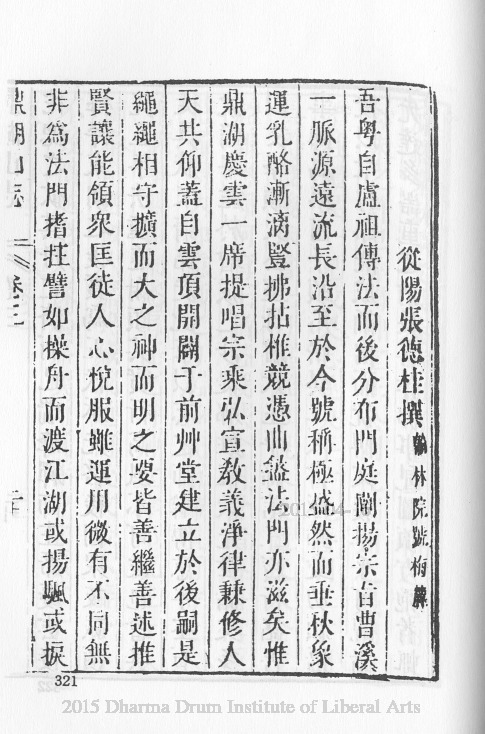 從陽張德桂撰翰林院號梅麓
吾粵自盧祖傳法而後分布門庭闡揚宗旨曹溪
一脈源遠流長沿至於今號稱極盛然而垂秋象
運乳酪漸漓豎拂拈椎競憑凷盌法門亦滋矣惟
鼎湖慶雲一席提唱宗乘弘宣教義淨律兼修人
天共仰蓋自雲頂開闢于前艸堂建立於後嗣是
繩繩相守擴而大之神而明之要皆善繼善述推
賢讓能領眾匡徒人心悅服雖運用微有不同無
非為法門搘拄譬如操舟而渡江湖或揚颿或捩
鼎湖山志 卷三 二十
321
2015 Dharma Drum Institute of Liberal Arts